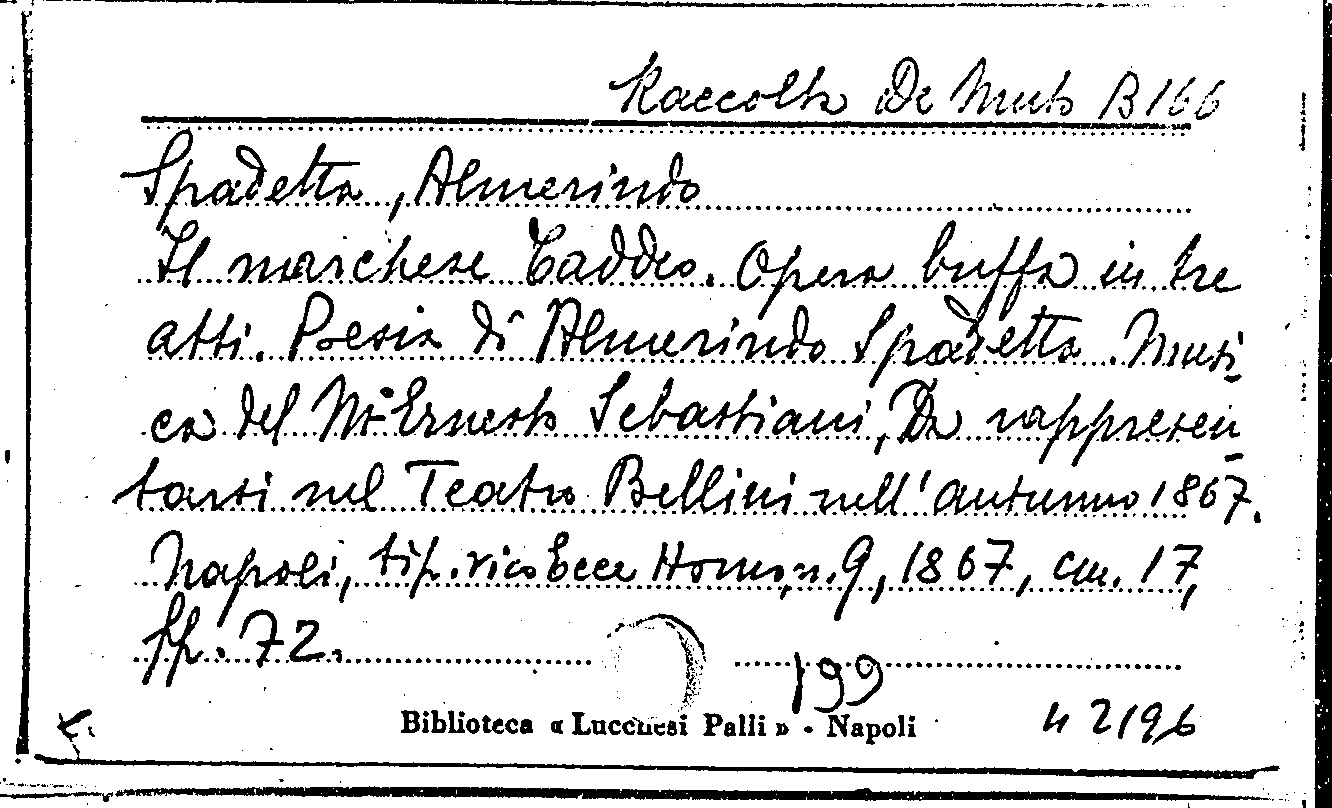 Raccolta De Muto B 166
Spadetta, Almerindo
Il marchese Taddeo. Opera buffa in tre
atti. Poesia di Almerindo Spadetta. Musi-
ca del M° Ernesto Sebastiani, Da rappresen-
tarsi nel Teatro Bellini nell'autunno 1867.
Napoli, tip. vico Ecce Homo, n. 9, 1867, cm. 17,
pp. 72.
199
Biblioteca « Lucchesi Palli » - Napoli
2196